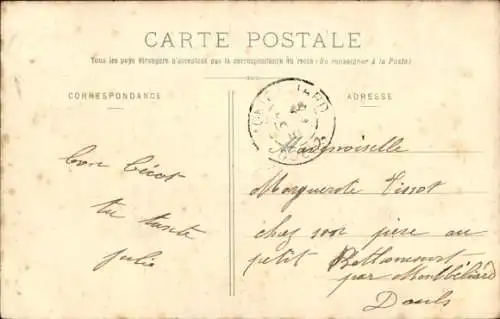 CARTE POSTALE
Tous les pays étrangers n'acceptent pas la correspondance au recto (Se renseigner à la Poste)
CORRESPONDANCE
ADRESSE
Bon bécot
ta tante
julie
Mademoiselle
Marguerite Tissot
chez son père au
petit Bettancourt
par Montbéliard
Doubs